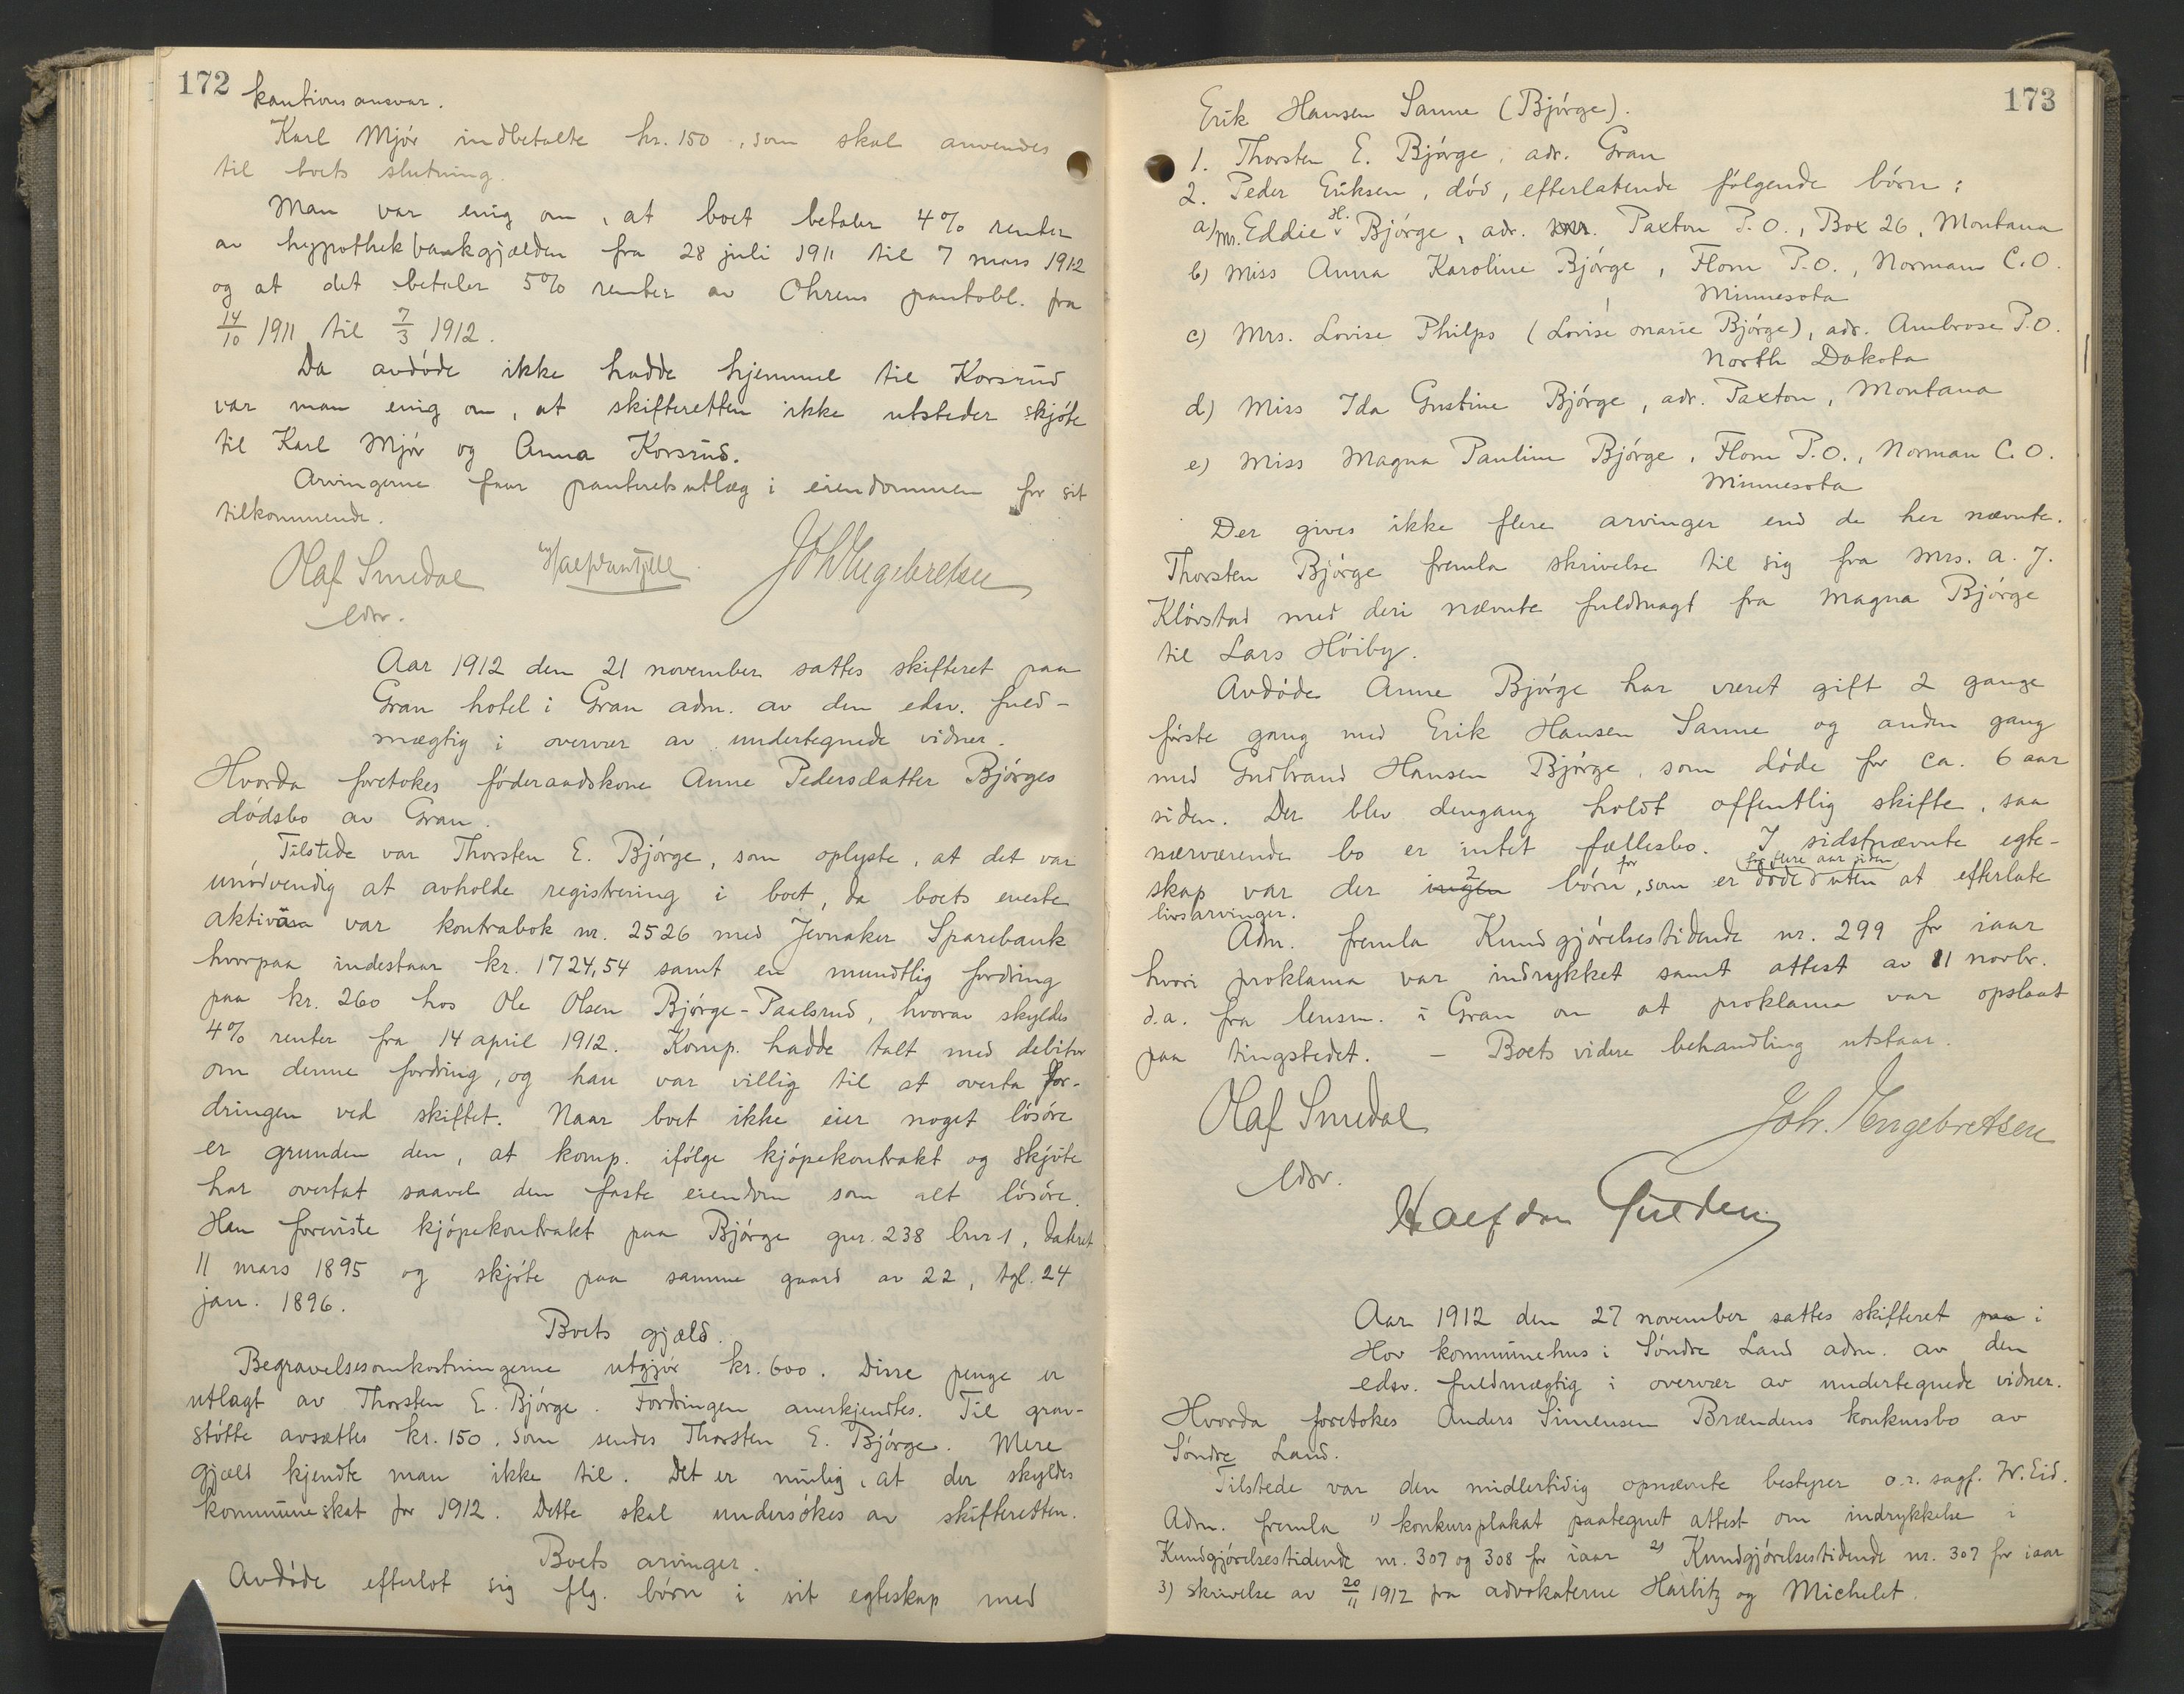 172
kautionsansvar.
Karl Mjør indbetalte kr. 150, som skal anvendes
til boets slutning.
Man var enig om, at boet betaler 4% renter
av hypothekbankgjælden fra 28 juli 1911 til 7 mars 1912
og at det betaler 5% renter av Ohrens pantobl. fra
14/10 1911 til 7/3 1912.
Da avdøde ikke hadde hjemmel til Korsrud
var man enig om, at skifteretten ikke utsteder skjøte
til Karl Mjør og Anna Korsrud.
Arvingerne faar panteretsutlæg i eiendommen for sit
tilkommende.
Olaf Smedal Joh Engebretsen
edsv.
Aar 1912 den 21 november sattes skifteret paa
Gran hotel i Gran adm. av den edsv. fuld-
mægtig i overvær av undertegnede vidner.
Hvorda foretokes føderaadskone Anne Pedersdatter Bjørges
dødsbo av Gran.
Tilstede var Thorsten E. Bjørge, som oplyste, at det var
unødvendig at avholde registrering i boet, da boets eneste
aktiva var kontrabok nr. 2526 med Jevnaker Sparebank
hvorpaa indestaar kr. 1724,54 samt en mundtlig fordring
paa kr. 260 hos Ole Olsen Bjørge-Paalsrud, hvorav skyldes
4% renter fra 14 april 1912. Komp. hadde talt med debitor
om denne fordring, og han var villig til at overta for-
dringen ved skiftet. Naar boet ikke eier noget løsøre
er grunden den, at komp. ifølge kjøpekontrakt og skjøte
har overtat saavel den faste eiendom som alt løsøre.
Han foreviste kjøpekontrakt paa Bjørge gnr. 238 bnr 1, dateret
11 mars 1895 og skjøte paa samme gaard av 22, tgl. 24
jan. 1896.
Boets gjæld.
Begravelsesomkostningerne utgjør kr. 600. Disse penge er
utlagt av Thorsten E. Bjørge. Fordringen anerkjendtes. Til grav-
støtte avsættes kr. 150, som sendes Thorsten E. Bjørge. Mere
gjæld kjendte man ikke til. Det er mulig, at der skyldes
kommuneskat for 1912. Dette skal undersøkes av skifteretten.
Boets arvinger.
Avdøde efterlot sig flg. børn i sit egteskap med
173
Erik Hansen Sanne (Bjørge).
1. Thorsten E. Bjørge, adr. Gran
2. Peder Eriksen, død, efterlatende følgende børn:
a) Mr. Eddie H. Bjørge, adr. Paxton P.O., Box 26, Montana
b) Miss Anna Karoline Bjørge, Flom P.O., Norman C.O.
Minnesota
c) Mrs. Lovise Philps (Lovise Marie Bjørge), adr. Ambrose P.O.
North Dakota
d) Miss Ida Gustine Bjørge, adr. Paxton, Montana
e) Miss Magna Pauline Bjørge, Flom P.O., Norman C.O.
Minnesota
Der gives ikke flere arvinger end de her nævnte.
Thorsten Bjørge fremla skrivelse til sig fra Mrs. A. J.
Kløvstad med deri nævnte fuldmagt fra Magna Bjørge
til Lars Høiby.
Avdøde Anne Bjørge har været gift 2 gange
første gang med Erik Hansen Sanne og anden gang
med Gudbrand Hansen Bjørge, som døde for ca. 6 aar
siden. Der blev dengang holdt offentlig skifte, saa
nærværende bo er intet fællesbo. I sidstnævnte egte-
skap var der ingen 2 børn, som er døde for flere aar siden uten at efterlate
livsarvinger.
Adm. fremla Kundgjørelsestidende nr. 299 for iaar
hvori proklama var indrykket samt attest av 11 novbr.
d.a. fra lensm. i Gran om at proklama var opslaat
paa tingstedet. – Boets videre behandling utstaar.
Olaf Smedal Joh. Engebretsen
edsv.
Halfdan Gulden
Aar 1912 den 27 november sattes skifteret paa i
Hov kommunehus i Søndre Land adm. av den
edsv. fuldmægtig i overvær av undertegnede vidner.
Hvorda foretokes Anders Simensen Brændens konkursbo av
Søndre Land.
Tilstede var den midlertidig opnævnte bestyrer o.r. sagf. W. Eid.
Adm. fremla 1) konkursplakat paategnet attest om indrykkelse i
Kundgjørelsestidende nr. 307 og 308 for iaar 2) Kundgjørelsestidende nr. 307 for iaar
3) skrivelse av 20/11 1912 fra advokaterne Harbitz og Michelet.